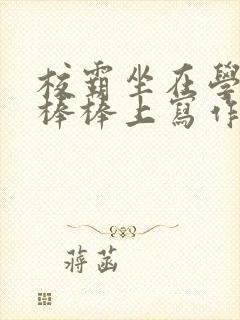 校霸坐在學
棒棒上寫作
蔣菡